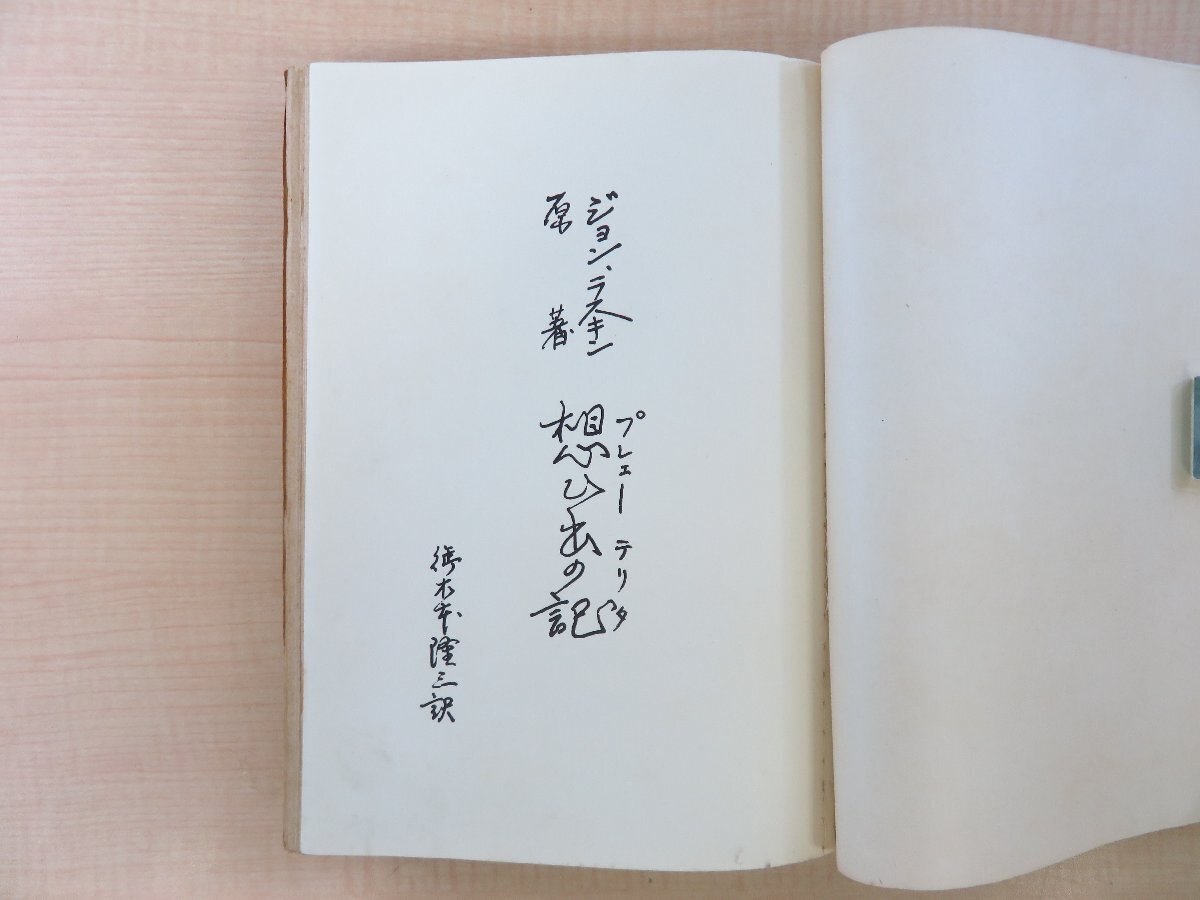 ジョン、ラスキン
原著
プレェーテリタ
想ひ出の記
御木本隆三訳